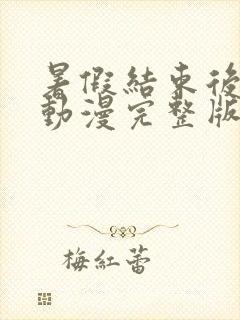 暑假結束後
動漫完整版
梅紅蕾